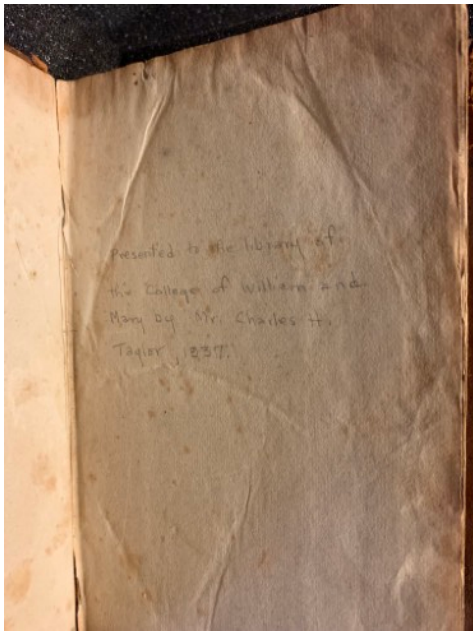 Presented to the library of
the College of William and
Mary by Mr. Charles H.
Taylor, 1937.